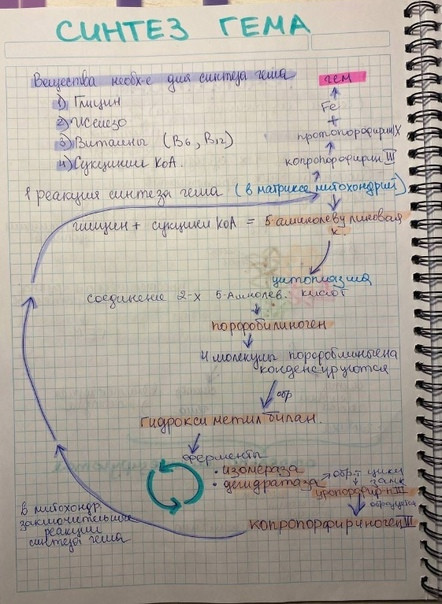 СИНТЕЗ ГЕМА
Вещества необх-е для синтеза гема
1) Глицин
2) Железо
3) Витамины (B6, B12)
4) Сукцинил КоА.
гем
Fe
+
протопорфирин IX
копропорфирин III
1 реакция синтеза гема (в матриксе митохондрий)
глицин + сукцинил КоА = 5-аминолевулиновая
к.
цитоплазма
соединение 2-х 5-Аминолев. кислот
порфобилиноген
4 молекулы порфобилиногена
конденсируются
обр
гидроксиметилбилан.
ферменты
• изомераза
• дегидратаза → обр-т цикл
замк
уропорфир-н III
образуется
копропорфириноген III
В митохонд.
заключительные
реакции
синтеза гема